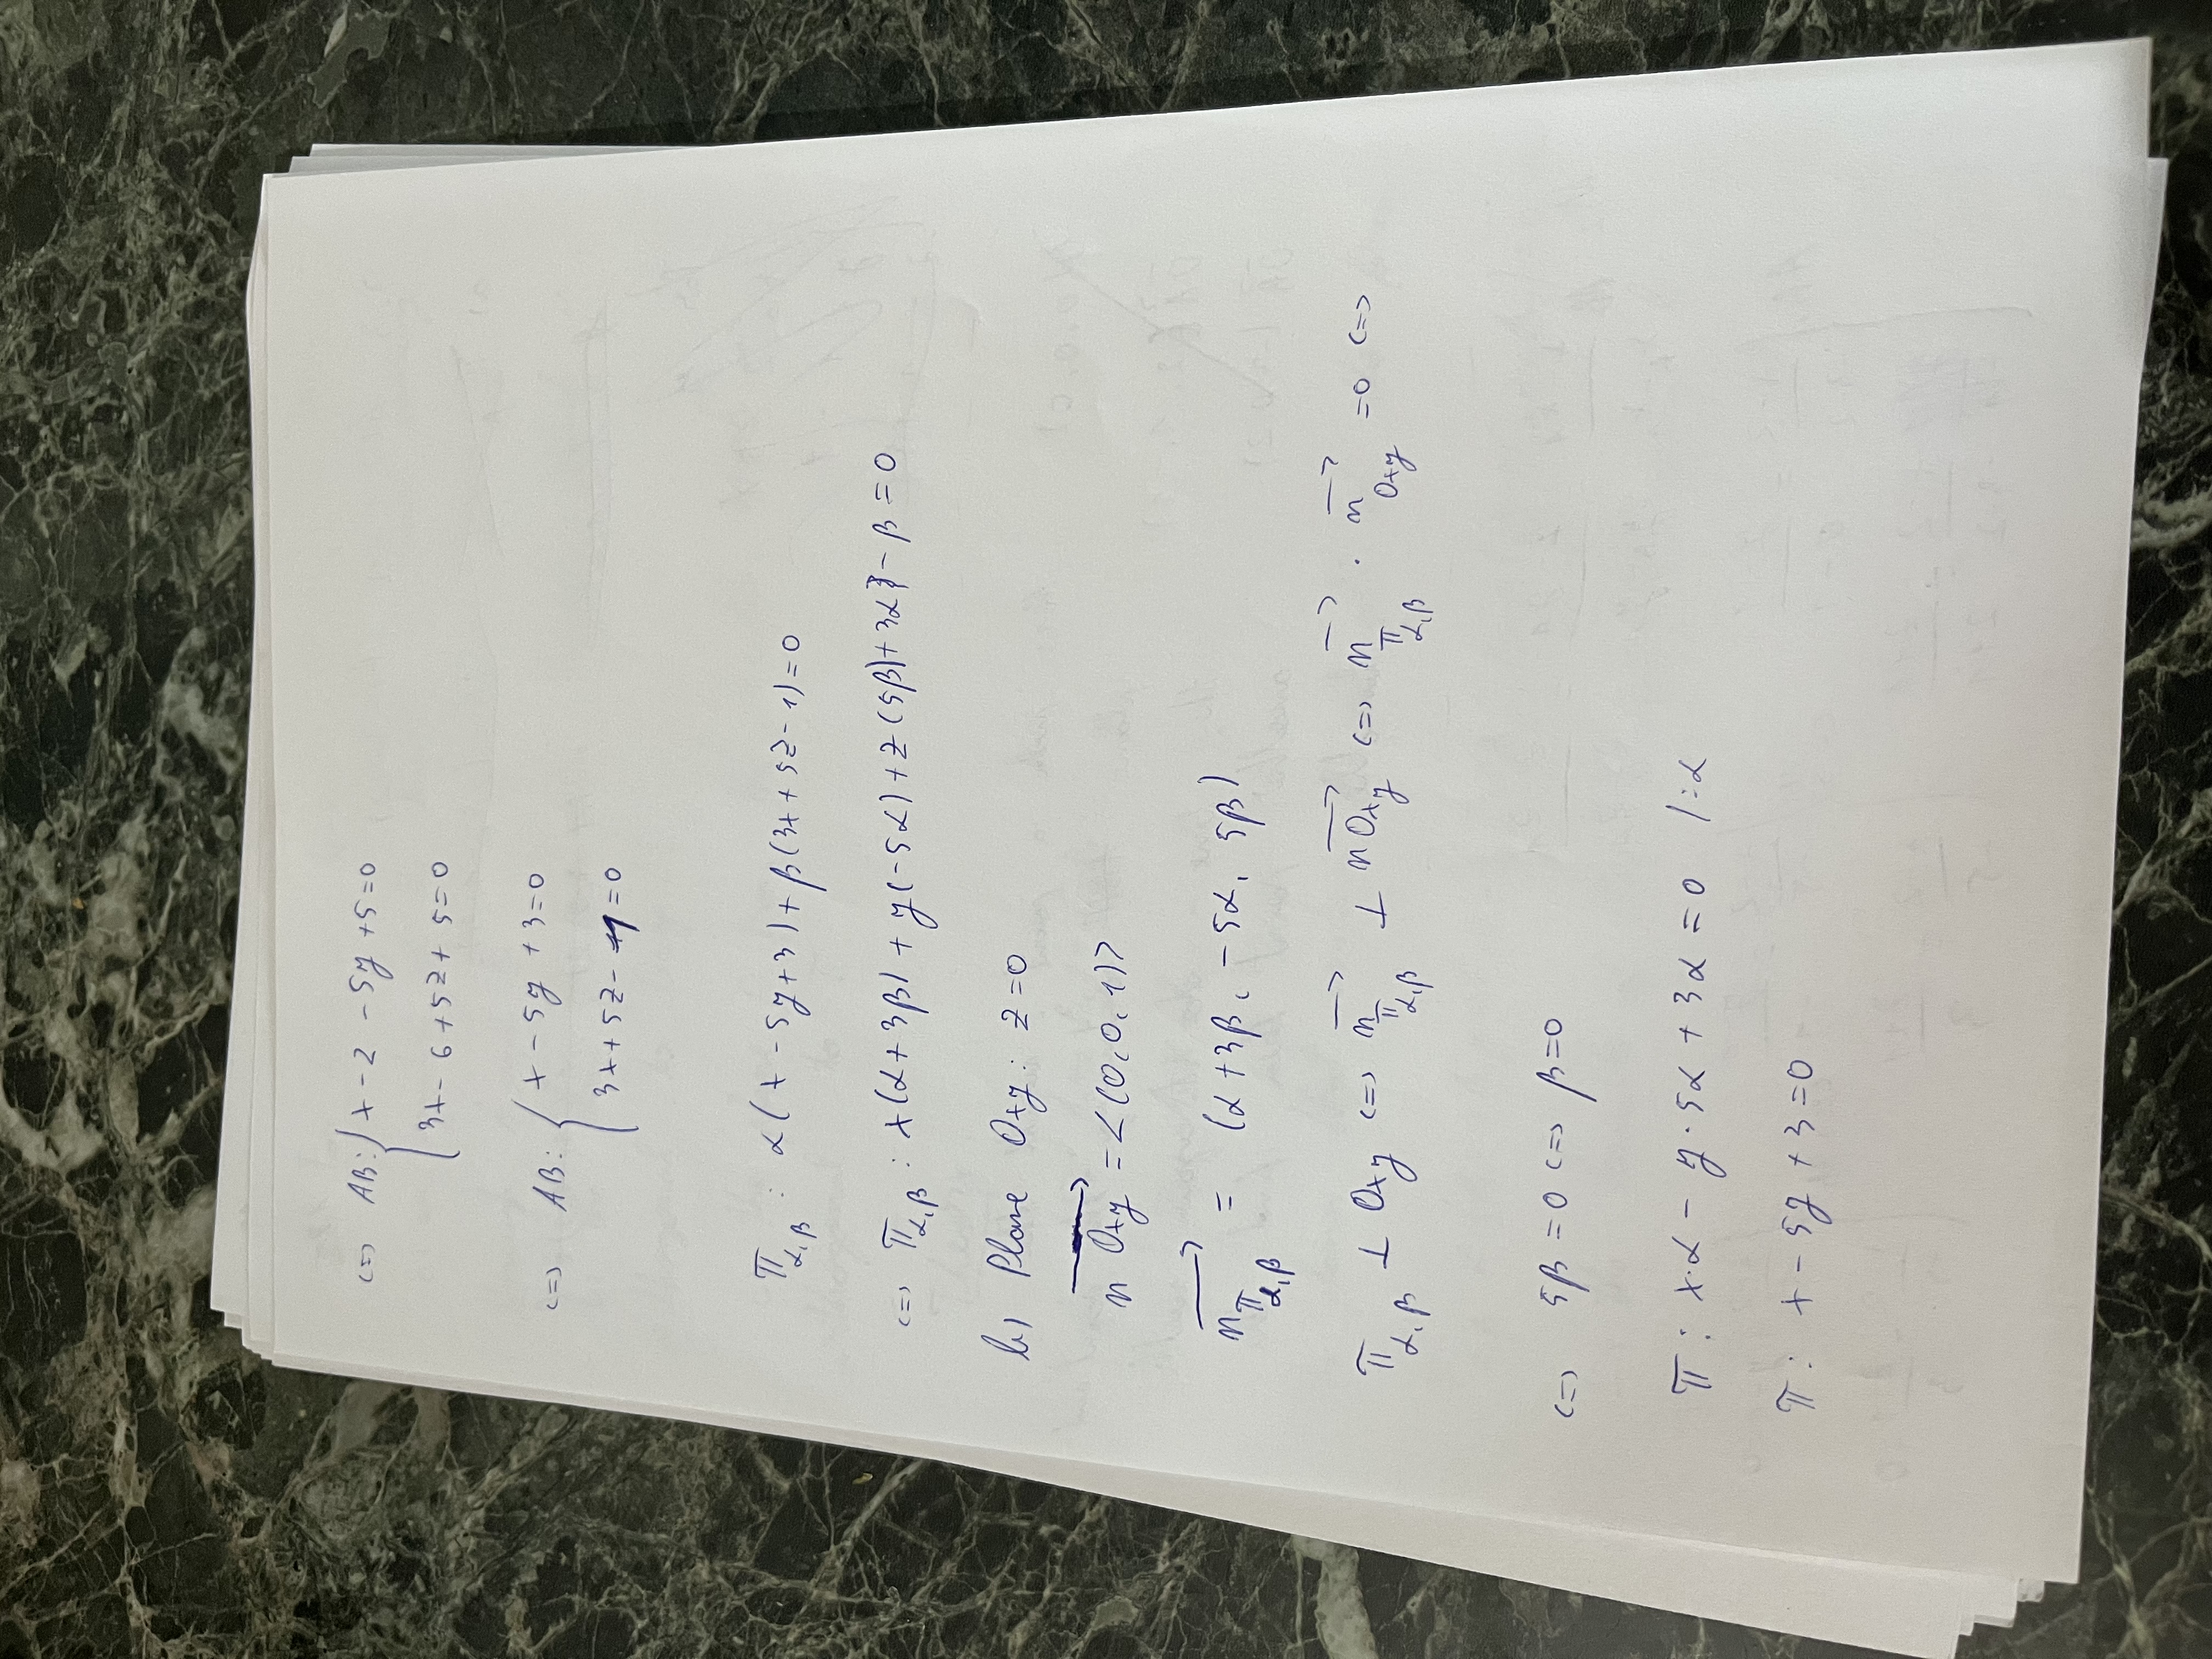 <=> AB: { x - 2 - 5y + 5 = 0
3x - 6 + 5z + 5 = 0
<=> AB: { x - 5y + 3 = 0
3x + 5z - 1 = 0
π_α,β : α(x - 5y + 3) + β(3x + 5z - 1) = 0
<=> π_α,β : x(α + 3β) + y(-5α) + z(5β) + 3α - β = 0
b) Plane Oxy: z = 0
n Oxy = <(0, 0, 1)>
n π_α,β = (α + 3β, -5α, 5β)
π_α,β ⊥ Oxy <=> n π_α,β ⊥ n Oxy <=> n π_α,β · n Oxy = 0 <=>
<=> 5β = 0 <=> β = 0
π : x·α - y·5α + 3α = 0 /:α
π : x - 5y + 3 = 0